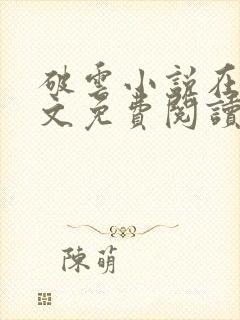 破雲小説在
文免費閱讀
陳萌